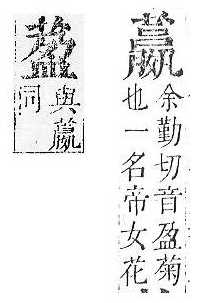 余勤切音盈菊
也一名帝女花
與
同